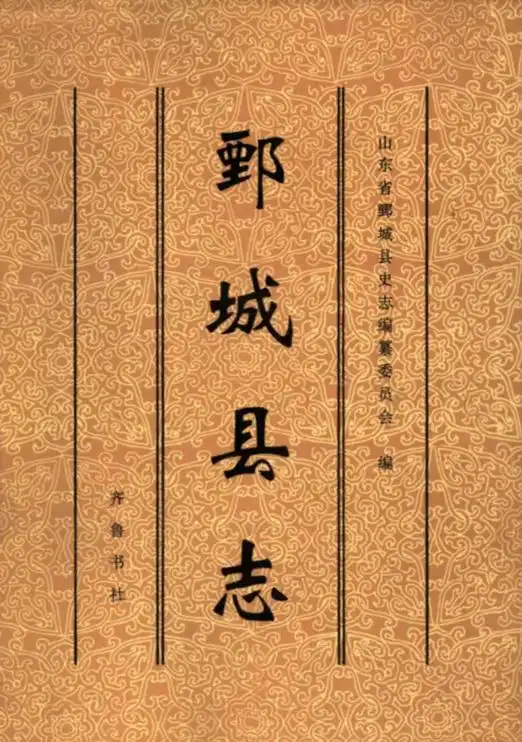 山东省鄄城县史志编纂委员会 编
鄄城县志
齐鲁书社